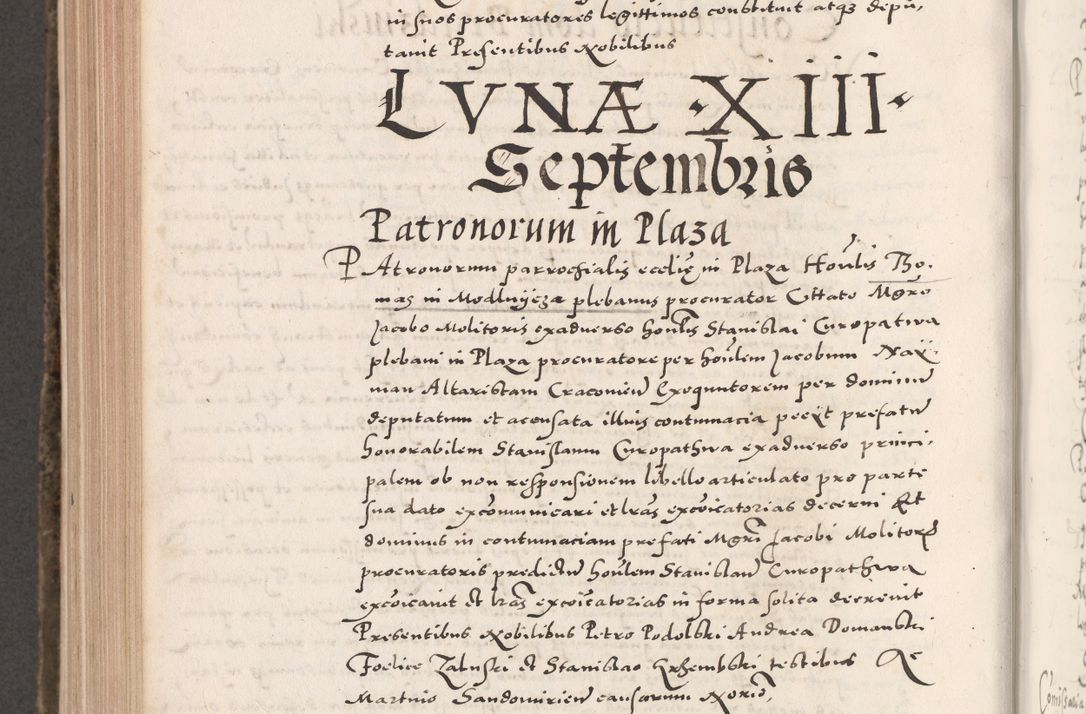 in suos procuratores legittimos constituit atq3 depu,
tauit Presentibus Nobilibus
LVNÆ · XIII ·
Septembris
Patronorum in Plaza
PAtronorum parrochialis ecclie in Plaza Honlis Tho,
mas in Modlnycza plebanus procurator Citato Mgro
Jacobo Molitoris exaduerso honlis Stanislai Curopatwa
plebani in Plaza procuratore per honlem Jacobum
man Altaristam Cracouien Exequutorem per dominum
deputatum et acusata illius contumacia peciit prefatum
honorabilem Stanislaum Curopathwa exaduerso princi,
palem ob non responsionem libello articulato pro parte
sua dato excomunicari et lras excoicatorias decerni Et
dominus in contumaciam prefati Mgri Jacobi Molitoris
procuratoris predictum honlem Stanislaum Curopathwa
excoicauit et lras excoicatorias in forma solita decreuit
Presentibus Nobilibus Petro Podolski Andrea Domanski
Foelice Zaluski et Stanislao Krzembski testibus Ac
Martino Sandomirien causarum Norio,